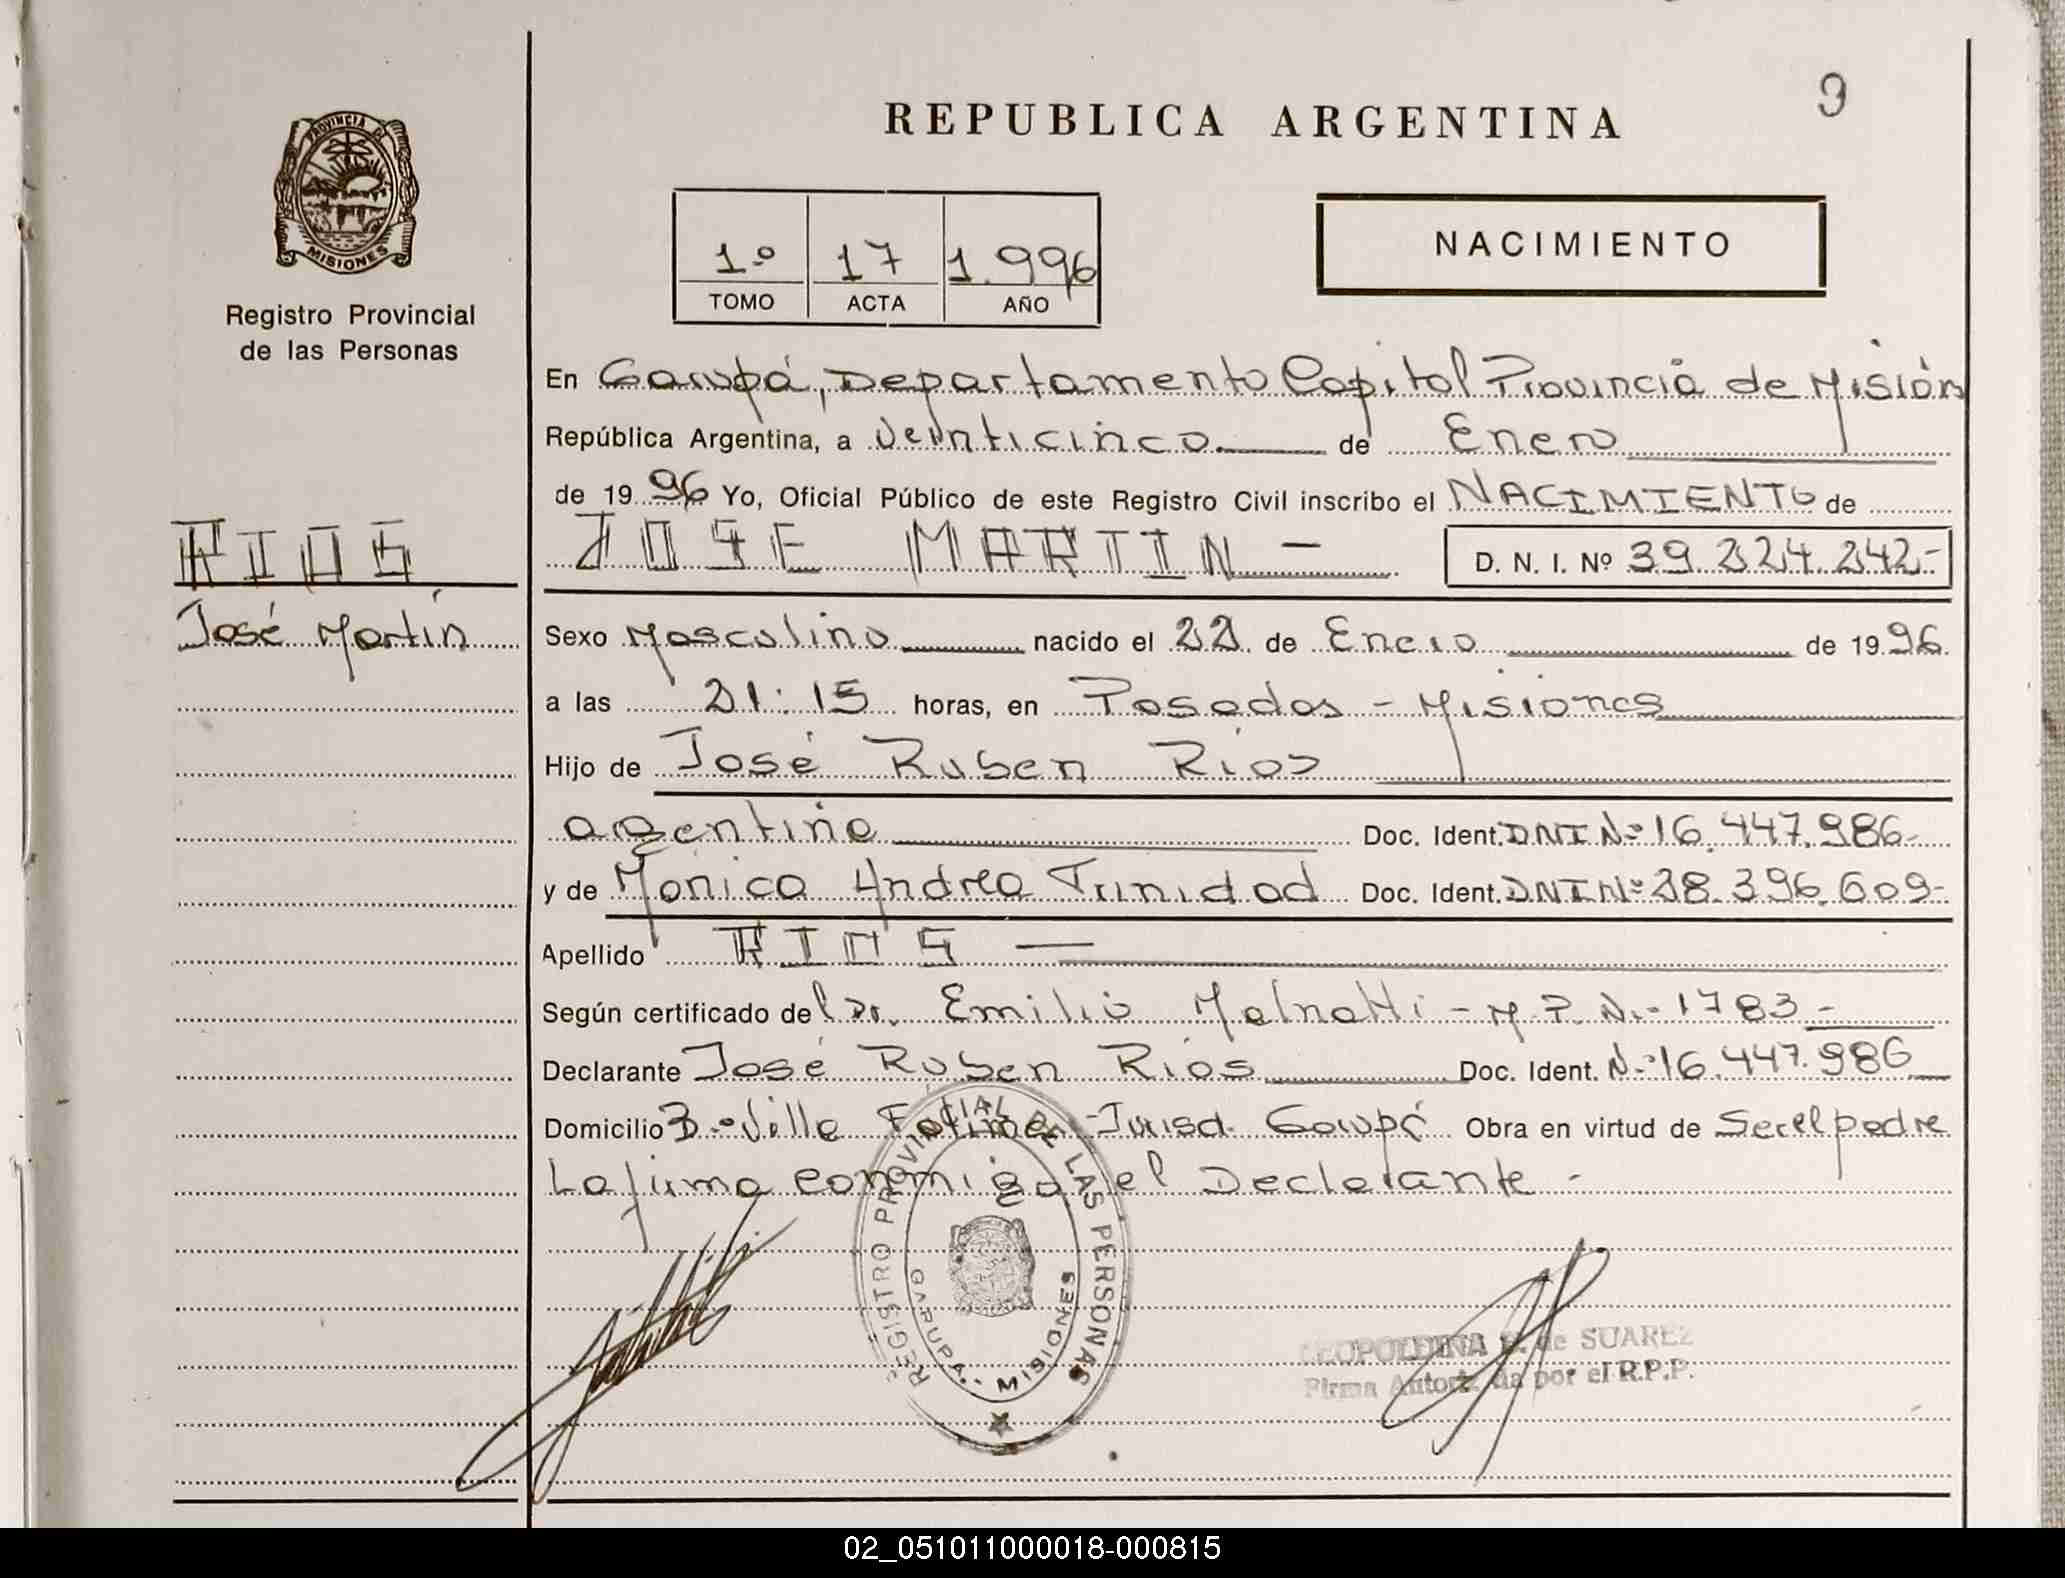 9
REPUBLICA ARGENTINA
PROVINCIA DE
MISIONES
Registro Provincial
de las Personas
1º 17 1.996
TOMO ACTA AÑO
NACIMIENTO
En Garupá, Departamento Capital Provincia de Mision
República Argentina, a Veinticinco. de Enero
de 1996 Yo, Oficial Público de este Registro Civil inscribo el NACIMIENTO de
RIOS
JOSE MARTIN - D. N. I. Nº 39.224.242-
José Martín
Sexo Masculino nacido el 22 de Enero de 1996.
a las 21:15 horas, en Posadas - Misiones
Hijo de José Ruben Rios
argentino Doc. Ident. DNI Nº 16.447.986-
y de Mónica Andrea Trinidad Doc. Ident. DNI Nº 28.396.609-
Apellido RIOS —
Según certificado del Dr. Emilio Malnatti - M.P. Nº 1783 -
Declarante José Ruben Rios Doc. Ident. Nº 16.447.986
Domicilio Bº Villa Fatima - Jurisd. Garupá Obra en virtud de Ser el padre
La firma conmigo el Declarante -
REGISTRO PROVINCIAL DE LAS PERSONAS
GARUPA - MISIONES
LEOPOLDINA de SUAREZ
Firma Autorizada por el R.P.P.
02_051011000018-000815